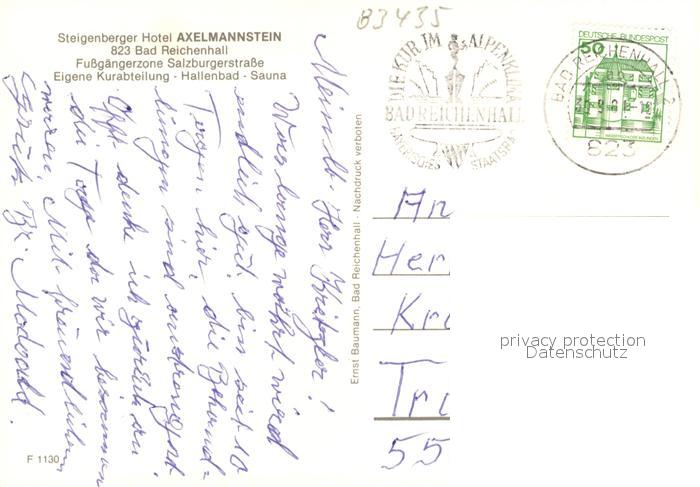 83435
Steigenberger Hotel AXELMANNSTEIN
823 Bad Reichenhall
Fußgängerzone Salzburgerstraße
Eigene Kurabteilung - Hallenbad - Sauna
Mein lb. Herr Kratzler!
Was lange währt wird
endlich gut, bin seit 10
Tagen hier, die Behand-
lungen sind anstrengend
Oft denke ich zurück an
die Tage da wir beisammen
waren. Mit freundlichen
Grüße Fr.
F 1130
Ernst Baumann, Bad Reichenhall - Nachdruck verboten
DIE KUR IM ALPENKLIMA
BAD REICHENHALL
BAYERISCHES STAATSBAD
DEUTSCHE BUNDESPOST
50
BAD REICHENHALL 2
823
An
Her
Kr
Tr
55
privacy protection
Datenschutz